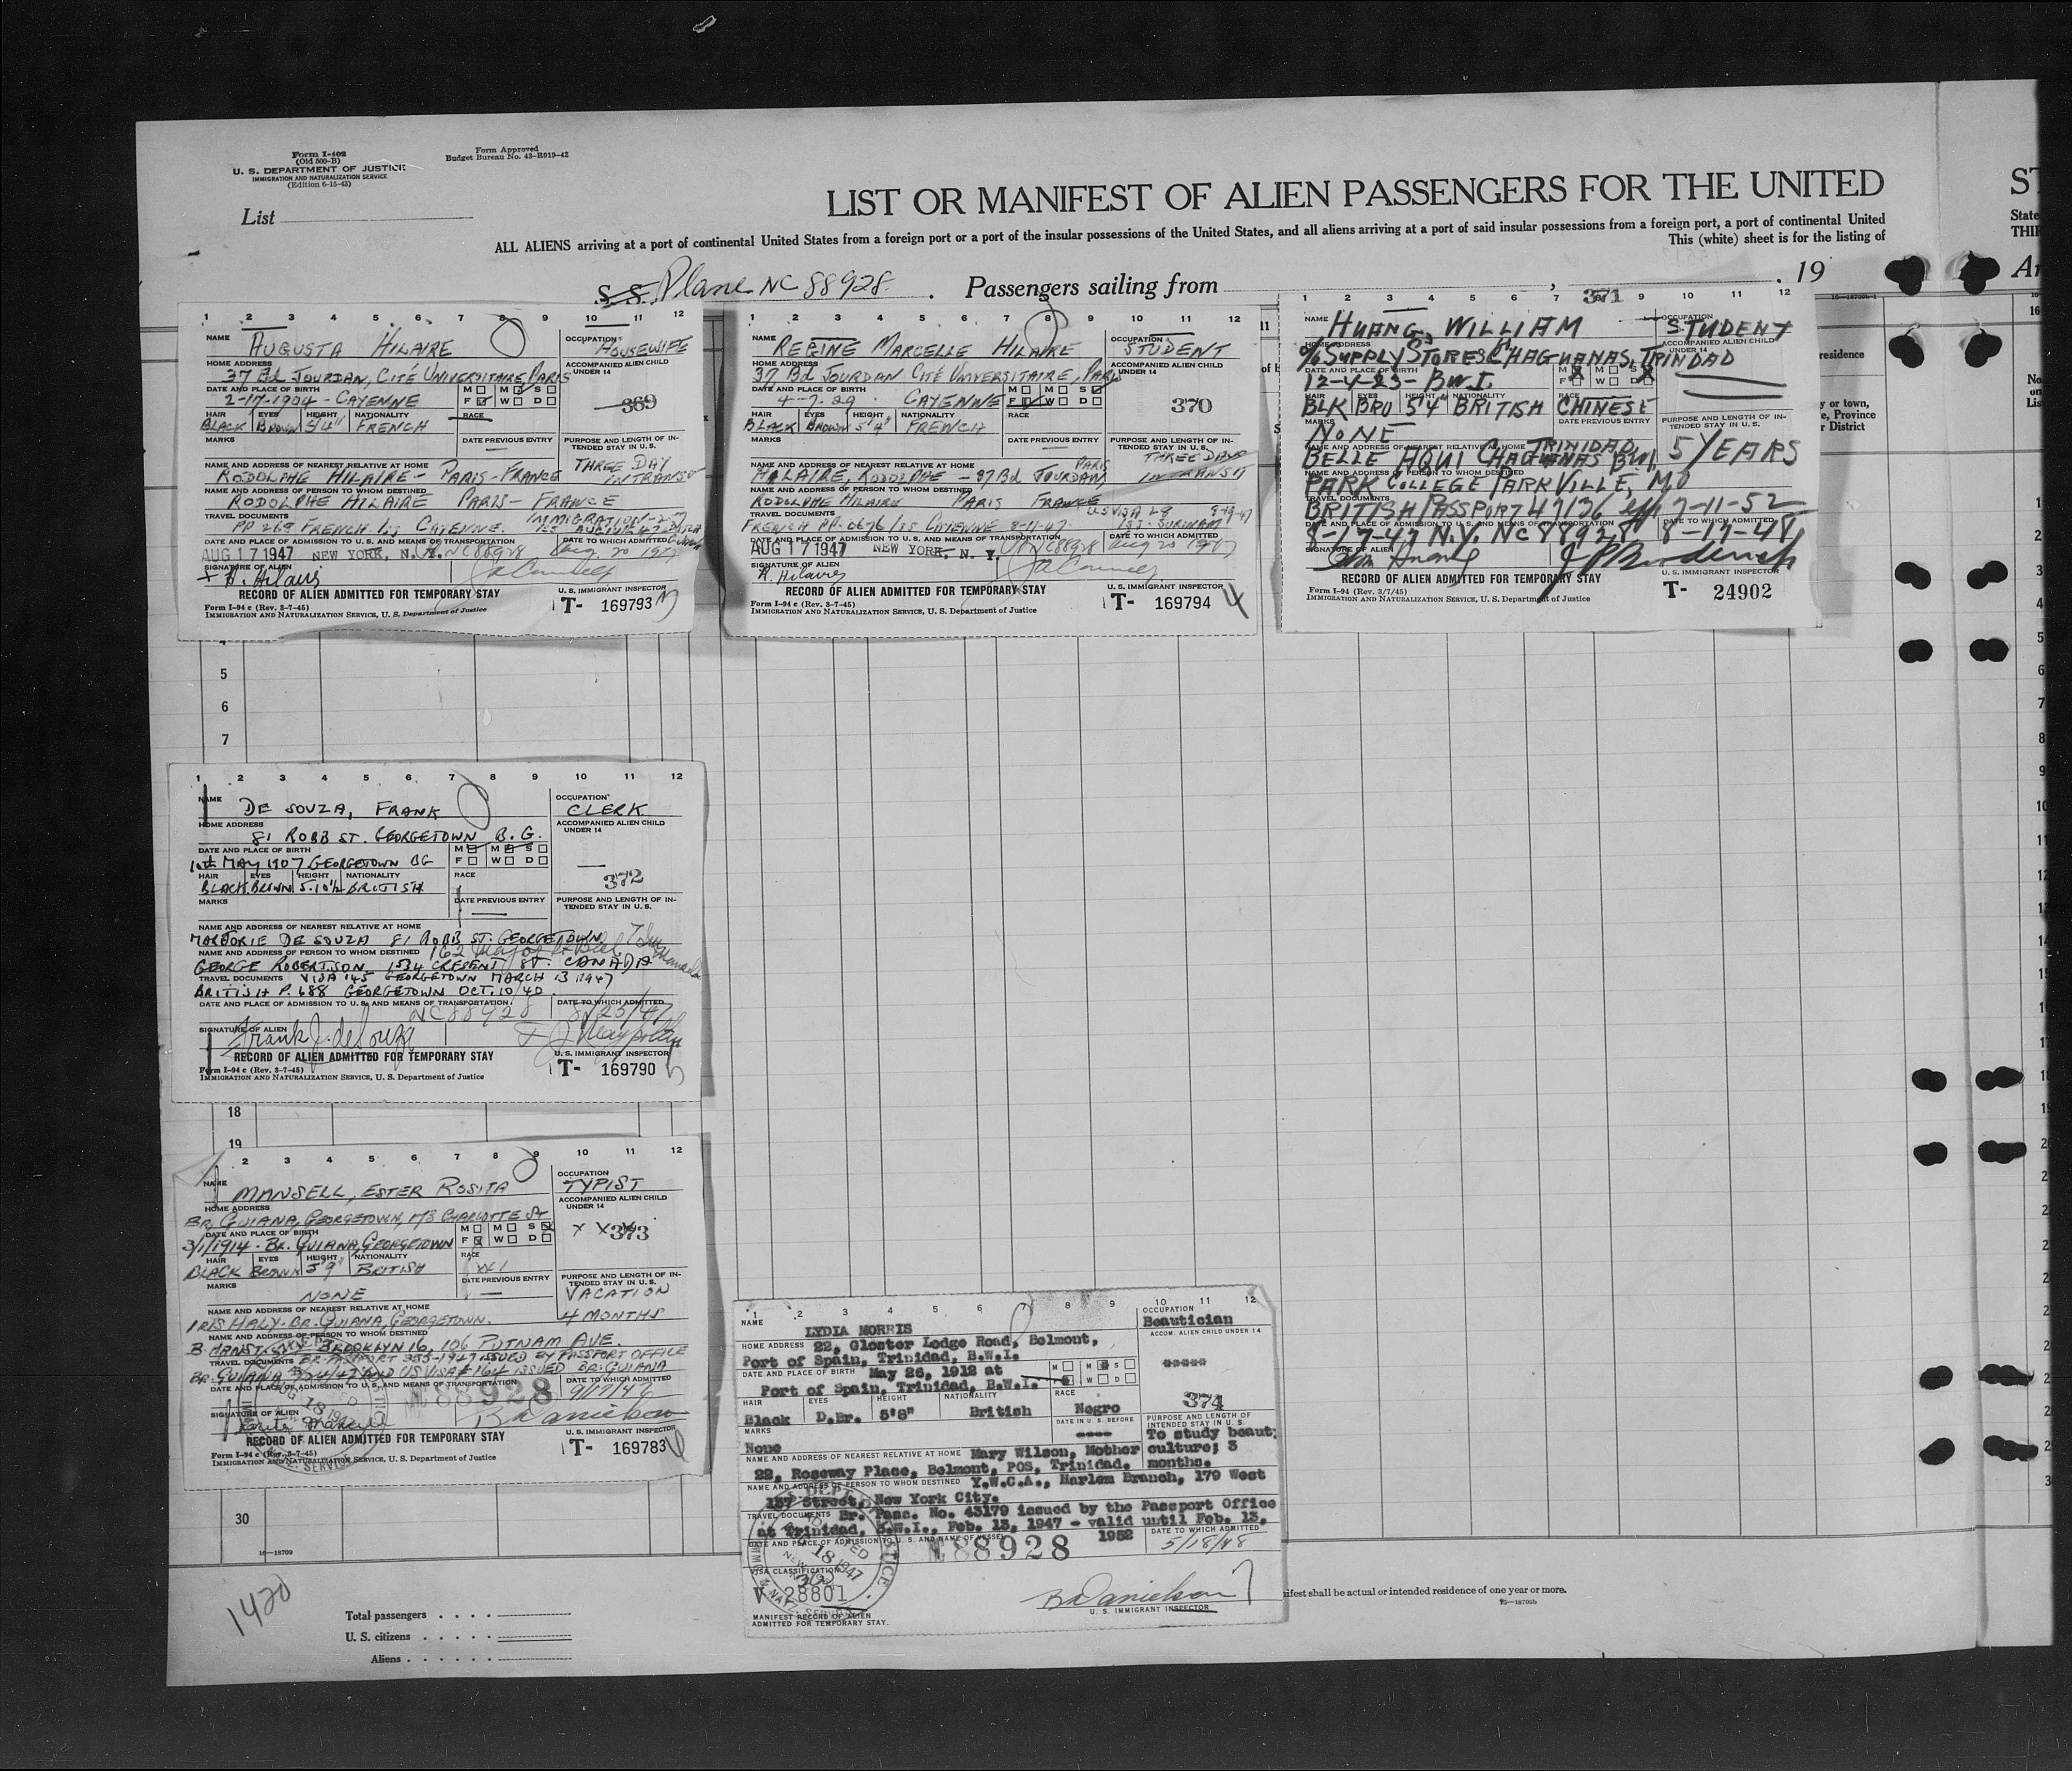 Form I-402
(Old 500-B)
U. S. DEPARTMENT OF JUSTICE
IMMIGRATION AND NATURALIZATION SERVICE
(Edition 6-15-43)
Form Approved
Budget Bureau No. 43-R019-42
List
LIST OR MANIFEST OF ALIEN PASSENGERS FOR THE UNITED
ALL ALIENS arriving at a port of continental United States from a foreign port or a port of the insular possessions of the United States, and all aliens arriving at a port of said insular possessions from a foreign port, a port of continental United
This (white) sheet is for the listing of
S. S. Plane NC 88928. Passengers sailing from , . 19
1 2 3 4 5 6 7 8 9 10 11 12
NAME AUGUSTA HILAIRE
OCCUPATION HOUSEWIFE
HOME ADDRESS
37 Bd JOURDAN, CITÉ UNIVERSITAIRE, PARIS
ACCOMPANIED ALIEN CHILD UNDER 14
DATE AND PLACE OF BIRTH
2-17-1904 - CAYENNE
M M S
F W D
369
HAIR EYES HEIGHT NATIONALITY RACE
BLACK BROWN 5'4" FRENCH
MARKS
DATE PREVIOUS ENTRY
PURPOSE AND LENGTH OF INTENDED STAY IN U. S.
THREE DAY
IN TRANSIT
NAME AND ADDRESS OF NEAREST RELATIVE AT HOME
RODOLPHE HILAIRE - PARIS-FRANCE
NAME AND ADDRESS OF PERSON TO WHOM DESTINED
RODOLPHE HILAIRE PARIS - FRANCE
TRAVEL DOCUMENTS
PP 269 FRENCH iss CAYENNE.
DATE AND PLACE OF ADMISSION TO U. S. AND MEANS OF TRANSPORTATION
DATE TO WHICH ADMITTED
AUG 17 1947 NEW YORK, N. Y. NC 88928 Aug 20 1947
SIGNATURE OF ALIEN
H. Hilaire
RECORD OF ALIEN ADMITTED FOR TEMPORARY STAY
U. S. IMMIGRANT INSPECTOR
Form I-94 c (Rev. 3-7-45)
IMMIGRATION AND NATURALIZATION SERVICE, U. S. Department of Justice
T- 169793
1 2 3 4 5 6 7 8 9 10 11 12
NAME REGINE MARCELLE HILAIRE
OCCUPATION STUDENT
HOME ADDRESS
37 Bd JOURDAN CITÉ UNIVERSITAIRE, PARIS
ACCOMPANIED ALIEN CHILD UNDER 14
DATE AND PLACE OF BIRTH
4-7-29 CAYENNE
M M S
F W D
370
HAIR EYES HEIGHT NATIONALITY RACE
BLACK BROWN 5'4" FRENCH
MARKS
DATE PREVIOUS ENTRY
PURPOSE AND LENGTH OF INTENDED STAY IN U. S.
THREE DAYS
IN TRANSIT
NAME AND ADDRESS OF NEAREST RELATIVE AT HOME
HILAIRE, RODOLPHE - 37 Bd JOURDAN PARIS
NAME AND ADDRESS OF PERSON TO WHOM DESTINED
RODOLPHE HILAIRE PARIS FRANCE
TRAVEL DOCUMENTS
FRENCH PP. 0676/iss CAYENNE 8-11-47. ISS. SURINAM
DATE AND PLACE OF ADMISSION TO U. S. AND MEANS OF TRANSPORTATION
DATE TO WHICH ADMITTED
AUG 17 1947 NEW YORK, N. Y. NC 88928 Aug 20 1947
SIGNATURE OF ALIEN
H. Hilaire
RECORD OF ALIEN ADMITTED FOR TEMPORARY STAY
U. S. IMMIGRANT INSPECTOR
Form I-94 c (Rev. 3-7-45)
IMMIGRATION AND NATURALIZATION SERVICE, U. S. Department of Justice
T- 169794
1 2 3 4 5 6 7 371 9 10 11 12
NAME HUANG, WILLIAM
OCCUPATION STUDENT
HOME ADDRESS
% SUPPLY STORES CHAGUANAS, TRINDAD
ACCOMPANIED ALIEN CHILD UNDER 14
DATE AND PLACE OF BIRTH
12-4-23 - B.W.I.
M M S
F W D
HAIR EYES HEIGHT NATIONALITY RACE
BLK BRU 5'4" BRITISH CHINESE
MARKS
NONE
DATE PREVIOUS ENTRY
PURPOSE AND LENGTH OF INTENDED STAY IN U. S.
5 YEARS
NAME AND ADDRESS OF NEAREST RELATIVE AT HOME
BELLE AQUI CHAGUANAS TRINIDAD, BWI
NAME AND ADDRESS OF PERSON TO WHOM DESTINED
PARK COLLEGE PARKVILLE, MO
TRAVEL DOCUMENTS
BRITISH PASSPORT 47136 7-11-52
DATE AND PLACE OF ADMISSION TO U. S. AND MEANS OF TRANSPORTATION
DATE TO WHICH ADMITTED
8-17-47 N.Y. NC 88928 8-17-48
SIGNATURE OF ALIEN
Wm Huang
RECORD OF ALIEN ADMITTED FOR TEMPORARY STAY
U. S. IMMIGRANT INSPECTOR
Form I-94 (Rev. 3/7/45)
IMMIGRATION AND NATURALIZATION SERVICE, U. S. Department of Justice
T- 24902
5
6
7
1 2 3 4 5 6 7 8 9 10 11 12
NAME DE SOUZA, FRANK
OCCUPATION CLERK
HOME ADDRESS
81 ROBB ST. GEORGETOWN B. G.
ACCOMPANIED ALIEN CHILD UNDER 14
DATE AND PLACE OF BIRTH
10th MAY 1907 GEORGETOWN BG
M M S
F W D
372
HAIR EYES HEIGHT NATIONALITY RACE
BLACK BROWN 5.10½ BRITISH
MARKS
DATE PREVIOUS ENTRY
PURPOSE AND LENGTH OF INTENDED STAY IN U. S.
NAME AND ADDRESS OF NEAREST RELATIVE AT HOME
MARJORIE DE SOUZA 81 ROBB ST. GEORGETOWN
NAME AND ADDRESS OF PERSON TO WHOM DESTINED
GEORGE ROBERTSON 1534 CRESENT ST. CANADA
TRAVEL DOCUMENTS VISA 145 GEORGETOWN MARCH 13 1947
BRITISH P. 688 GEORGETOWN OCT. 10/40
DATE AND PLACE OF ADMISSION TO U. S. AND MEANS OF TRANSPORTATION
DATE TO WHICH ADMITTED
NC 88928 8/25/47
SIGNATURE OF ALIEN
Frank J. deSouza
RECORD OF ALIEN ADMITTED FOR TEMPORARY STAY
U. S. IMMIGRANT INSPECTOR
Form I-94 c (Rev. 3-7-45)
IMMIGRATION AND NATURALIZATION SERVICE, U. S. Department of Justice
T- 169790
18
19
2 3 4 5 6 7 8 9 10 11 12
NAME MANSELL, ESTER ROSITA
OCCUPATION TYPIST
HOME ADDRESS
BR. GUIANA, GEORGETOWN, 173 CHARLOTTE St
ACCOMPANIED ALIEN CHILD UNDER 14
X X X 373
DATE AND PLACE OF BIRTH
3/1/1914 - BR. GUIANA, GEORGETOWN
M M S
F W D
HAIR EYES HEIGHT NATIONALITY RACE
BLACK BROWN 5'9" BRITISH WI
MARKS
NONE
DATE PREVIOUS ENTRY
PURPOSE AND LENGTH OF INTENDED STAY IN U. S.
VACATION
4 MONTHS
NAME AND ADDRESS OF NEAREST RELATIVE AT HOME
IRIS HALY - BR. GUIANA, GEORGETOWN.
NAME AND ADDRESS OF PERSON TO WHOM DESTINED
BROOKLYN 16, 106 PUTNAM AVE.
TRAVEL DOCUMENTS BR. PASSPORT 355-1947 ISSUED BY PASSPORT OFFICE
BR. GUIANA AND US VISA # 164 ISSUED BR. GUIANA
DATE AND PLACE OF ADMISSION TO U. S. AND MEANS OF TRANSPORTATION
DATE TO WHICH ADMITTED
NC 88928
SIGNATURE OF ALIEN
RECORD OF ALIEN ADMITTED FOR TEMPORARY STAY
U. S. IMMIGRANT INSPECTOR
Form I-94 c (Rev. 3-7-45)
IMMIGRATION AND NATURALIZATION SERVICE, U. S. Department of Justice
T- 169783
1 2 3 4 5 6 7 8 9 10 11 12
NAME LYDIA MORRIS
OCCUPATION Beautician
HOME ADDRESS 22, Gloster Lodge Road, Belmont,
Port of Spain, Trinidad, B.W.I.
ACCOM. ALIEN CHILD UNDER 14
DATE AND PLACE OF BIRTH May 26, 1912 at
Port of Spain, Trinidad, B.W.I.
M M S
F W D
374
HAIR EYES HEIGHT NATIONALITY RACE
Black D.Br. 5'8" British Negro
MARKS
None
DATE IN U. S. BEFORE
----
PURPOSE AND LENGTH OF INTENDED STAY IN U. S.
To study beaut;
culture; 3
months.
NAME AND ADDRESS OF NEAREST RELATIVE AT HOME Mary Wilson, Mother
22, Roseway Place, Belmont, POS, Trinidad.
NAME AND ADDRESS OF PERSON TO WHOM DESTINED Y.W.C.A., Harlem Branch, 179 West
137 Street, New York City.
TRAVEL DOCUMENTS Br. Pass. No. 43179 issued by the Passport Office
at Trinidad, B.W.I., Feb. 13, 1947 - valid until Feb. 13,
1952
DATE AND PLACE OF ADMISSION TO U. S. AND NAME OF VESSEL
DATE TO WHICH ADMITTED
NC 88928 5/18/48
VISA CLASSIFICATION
V 28801
MANIFEST RECORD OF ALIEN
ADMITTED FOR TEMPORARY STAY.
U. S. IMMIGRANT INSPECTOR
30
16-18709
1420
Total passengers
U. S. citizens
Aliens
ifest shall be actual or intended residence of one year or more.